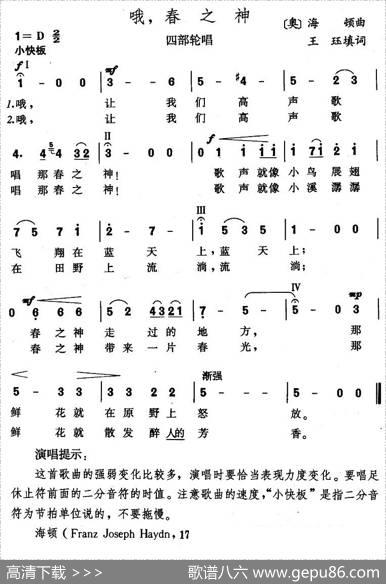 哦，春之神
四部轮唱
〔奥〕海 顿曲
王 珏填词
1=D 2/2
小快板
f I
mf
1 - 0 0 | 3 - 6 6 | 5 - #4 - | 5 - 5 - |
1.哦， 让 我 们 高 声 歌
2.哦， 让 我 们 高 声 歌
II
f
唱 那春之 神！ 歌 声就像 小鸟展翅
唱 那春之 神！ 歌 声就像 小溪潺潺
III
7 5 7 1 | 2 - 7 - | 1 5 5 5 | 1 - 0 0 |
飞 翔在 蓝 天 上，蓝 天 上；
在 田野 上 流 淌，流 淌；
mf
IV
mp
春 之 神 走 过 的 地 方， 那
春 之 神 带来 一片 春 光，那
渐强
5 - 3 3 | 3 3 2 2 | 5 - 5 - | 5 - 0 3 ‖
鲜 花就 在原野上 怒 放。
鲜 花就 散发醉人的 芳 香。
演唱提示：
这首歌曲的强弱变化比较多，演唱时要恰当表现力度变化。要唱足
休止符前面的二分音符的时值。注意歌曲的速度，“小快板”是指二分音
符为节拍单位说的，不要拖慢。
海顿（Franz Joseph Haydn，17
高清下载 >>>
歌谱八六 www.gepu86.com